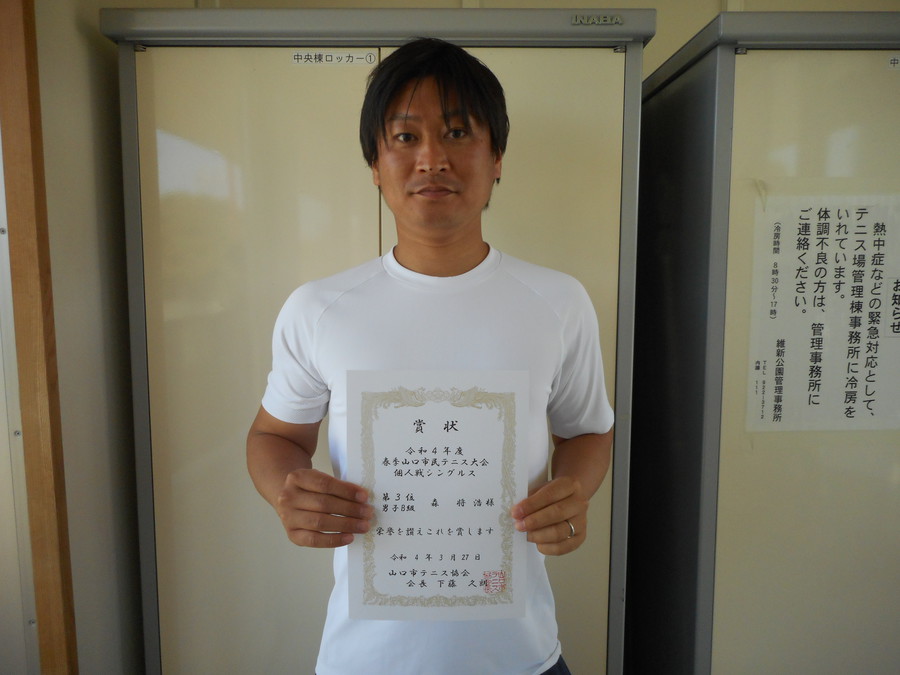 INABA
中央棟ロッカー①
賞状
令和4年度
春季山口市民テニス大会
個人戦シングルス
第3位
男子B級
森 将浩様
栄誉を讃えこれを賞します
令和 4年 3月 27日
山口市テニス協会
会長 下藤 文朗
中
お知らせ
熱中症などの緊急対応として、
テニス場管理棟事務所に冷房を
いれています。
体調不良の方は、管理事務所に
ご連絡ください。
(冷房時間 8時30分~17時)
維新公園管理事務所
TEL
内線 111